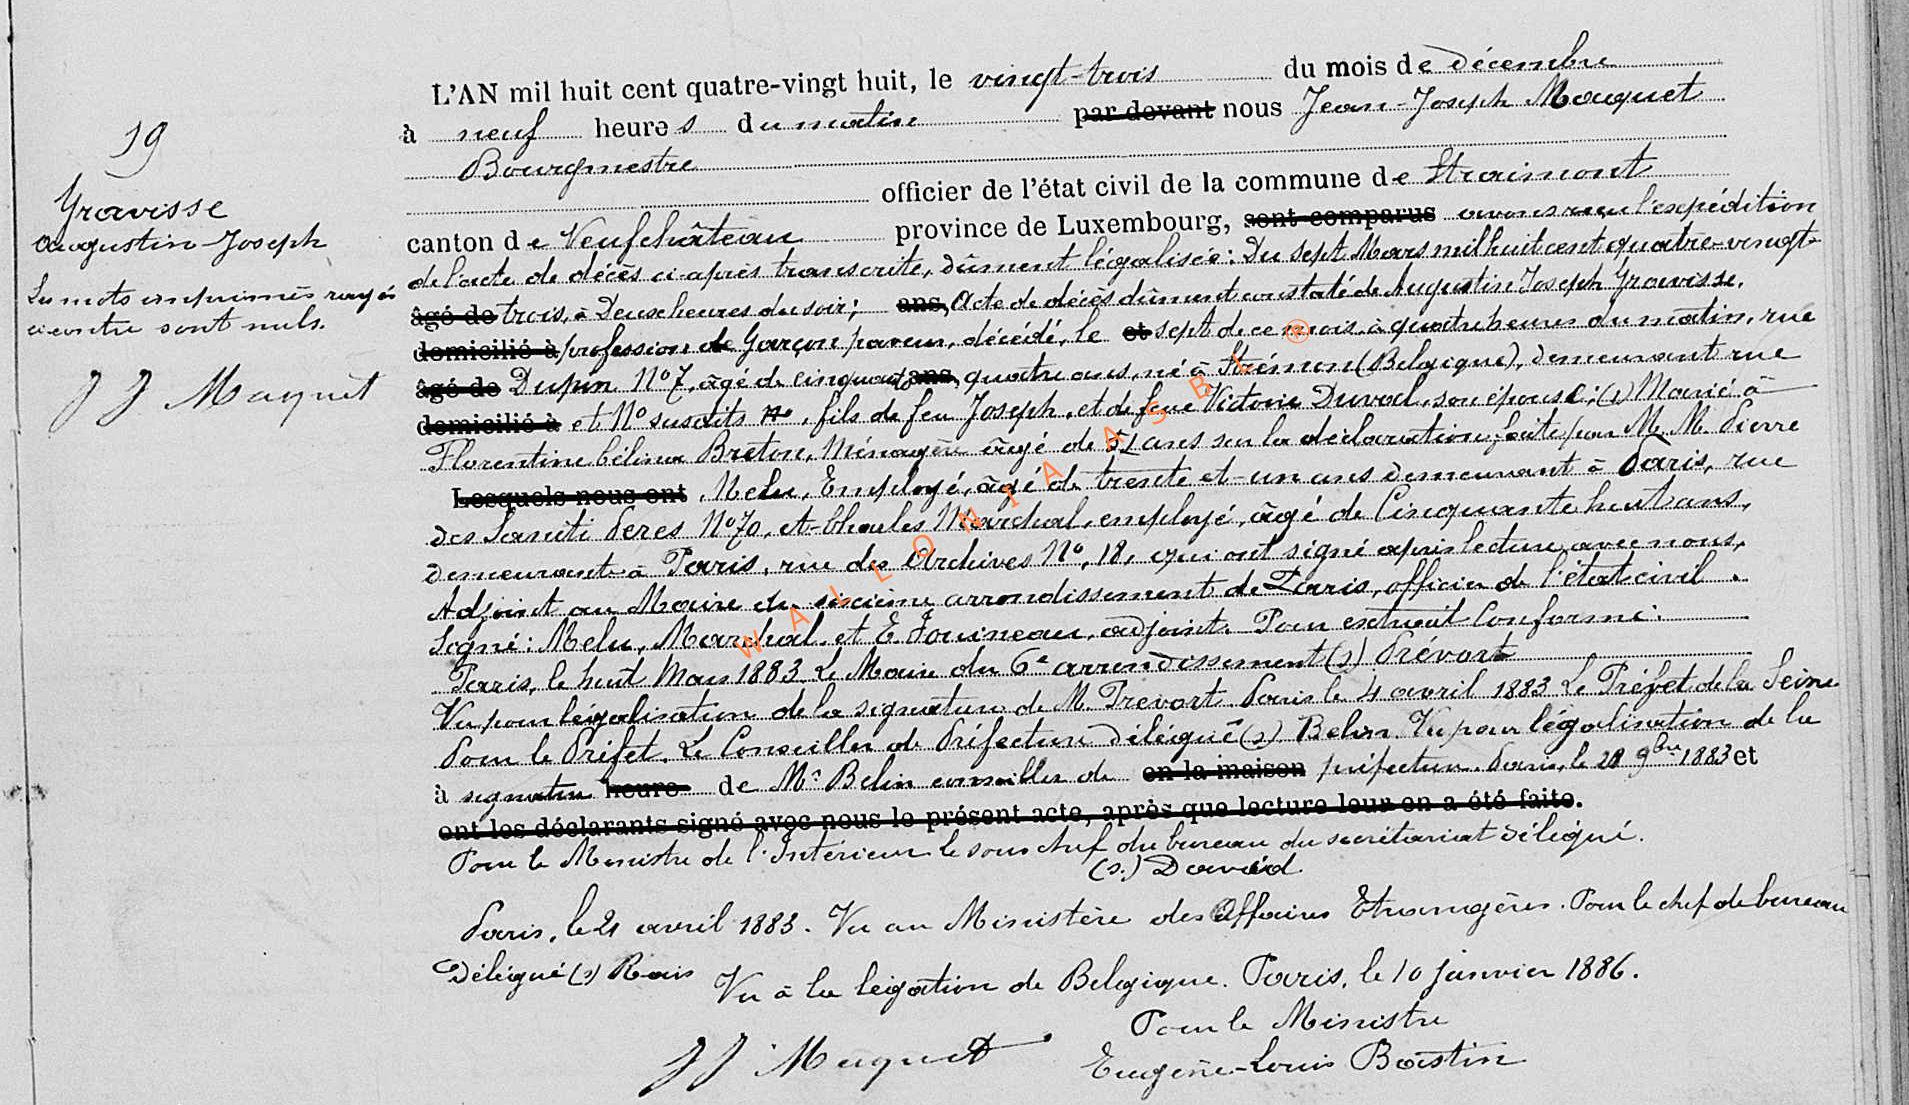 L'AN mil huit cent quatre-vingt huit, le vingt-trois du mois de décembre
à neuf heures du matin par devant nous Jean-Joseph Maquet
Bourgmestre
officier de l'état civil de la commune de Straimont
canton de Neufchâteau province de Luxembourg, sont comparus avons reçu l'expédition
de l'acte de décès ci-après transcrite, dûment légalisée : Du sept Mars mil huit cent quatre-vingt-
âgé de trois, à Deux heures du soir; ans, Acte de décès dûment constaté de Augustin Joseph Gravisse,
domicilié à profession de Garçon paveur, décédé, le et sept de ce mois à quatre heures du matin, rue
âgé de Dupin N° 7, âgé de cinquante ans, quatre ans, né à Strémon (Belgique), demeurant rue
domicilié à et N° susdits, fils de feu Joseph, et de feue Victoire Duval, son épouse; (1) Marié à
Florentine Célina Breton, Ménagère âgé de 51 ans sur la déclaration faite par M. M. Pierre
Lesquels nous ont Melu, Employé, âgé de trente et-un ans demeurant à Paris, rue
des Saints Peres N° 70, et Charles Marchal, employé, âgé de Cinquante huit ans,
demeurant à Paris, rue des Archives N°, 18, qui ont signé après lecture avec nous,
Adjoint au Maire du sixième arrondissement de Paris, officier de l'état civil.
Signé : Melu, Marchal, et E. Jouineau, adjoint. Pour extrait Conforme :
Paris, le huit Mars 1883 Le Maire du 6e arrondissement (s) Prévart
Vu pour légalisation de la signature de M. Prevart Paris le 4 avril 1883 Le Préfet de la Seine
Pour le Préfet, Le Conseiller de Préfecture Délégué (s) Belin Vu pour légalisation de la
à signature heure de Mr Belin conseiller de en la maison préfecture. Paris, le 9bre 1883 et
ont les déclarants signé avec nous le présent acte, après que lecture leur en a été faite.
Pour le Ministre de l'Intérieur le sous chef du bureau du secrétariat délégué.
(s.) David
Paris, le 21 avril 1883. Vu au Ministère des Affaires Etrangères. Pour le chef de bureau
Délégué (s) Rais
Vu à la légation de Belgique. Paris, le 10 janvier 1886.
Pour le Ministre
Eugène-Louis Bastin
JJ Maquet
19
Gravisse
Augustin-Joseph
Les mots imprimés rayés
ci contre sont nuls.
JJ Maquet
WALLONIA ASBL ®